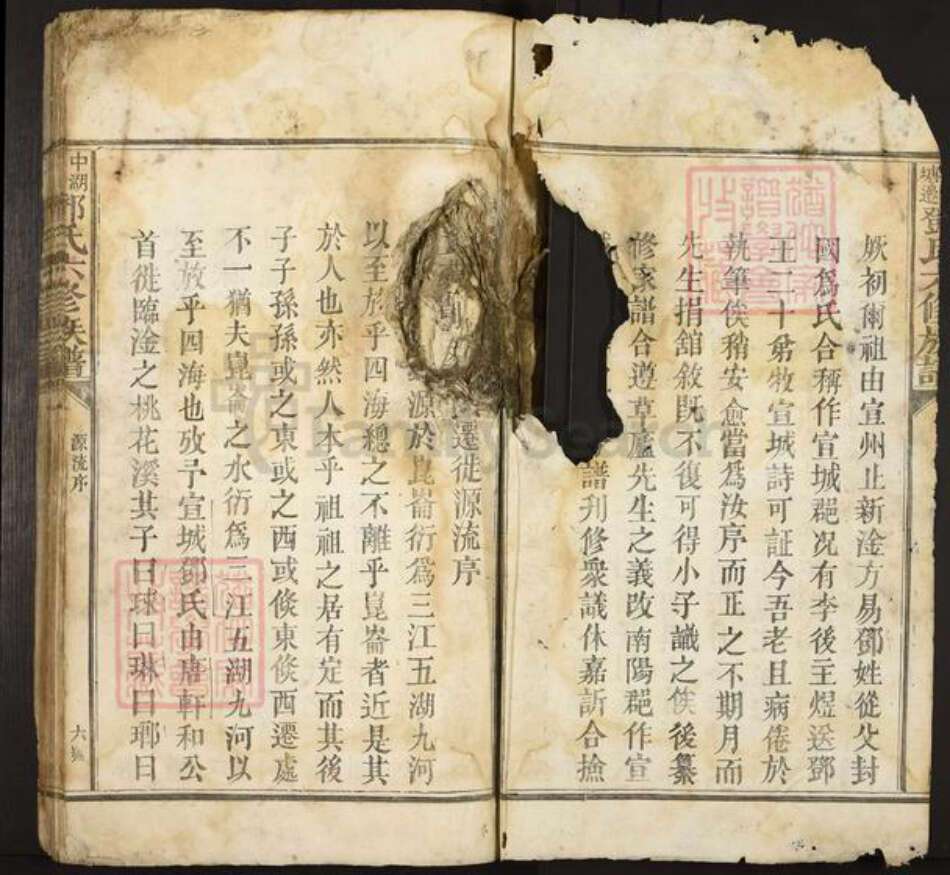 厥初爾祖由宣州止新淦方易鄧姓從父封
國爲氏合稱作宣城郡况有李後主煜送鄧
王二十弟牧宣城詩可証今吾老且病倦於
執筆俟稍安愈當爲汝序而正之不期月而
先生捐舘敘既不復可得小子識之俟後纂
修家譜合遵草廬先生之義改南陽郡作宣
譜刋修衆議休嘉訢合撿
遷徙源流序
源於崑崙衍爲三江五湖九河
以至於放乎四海緫之不離乎崑崙者近是其
於人也亦然人本乎祖祖之居有定而其後
子子孫孫或之東或之西或倐東倐西遷處
不一猶夫崑侖之水衍爲三江五湖九河以
至放乎四海也攷予宣城鄧氏由唐軒和公
首徙臨淦之桃花溪其子曰球曰琳曰琊曰
中湖鄧氏六修族譜
源流序